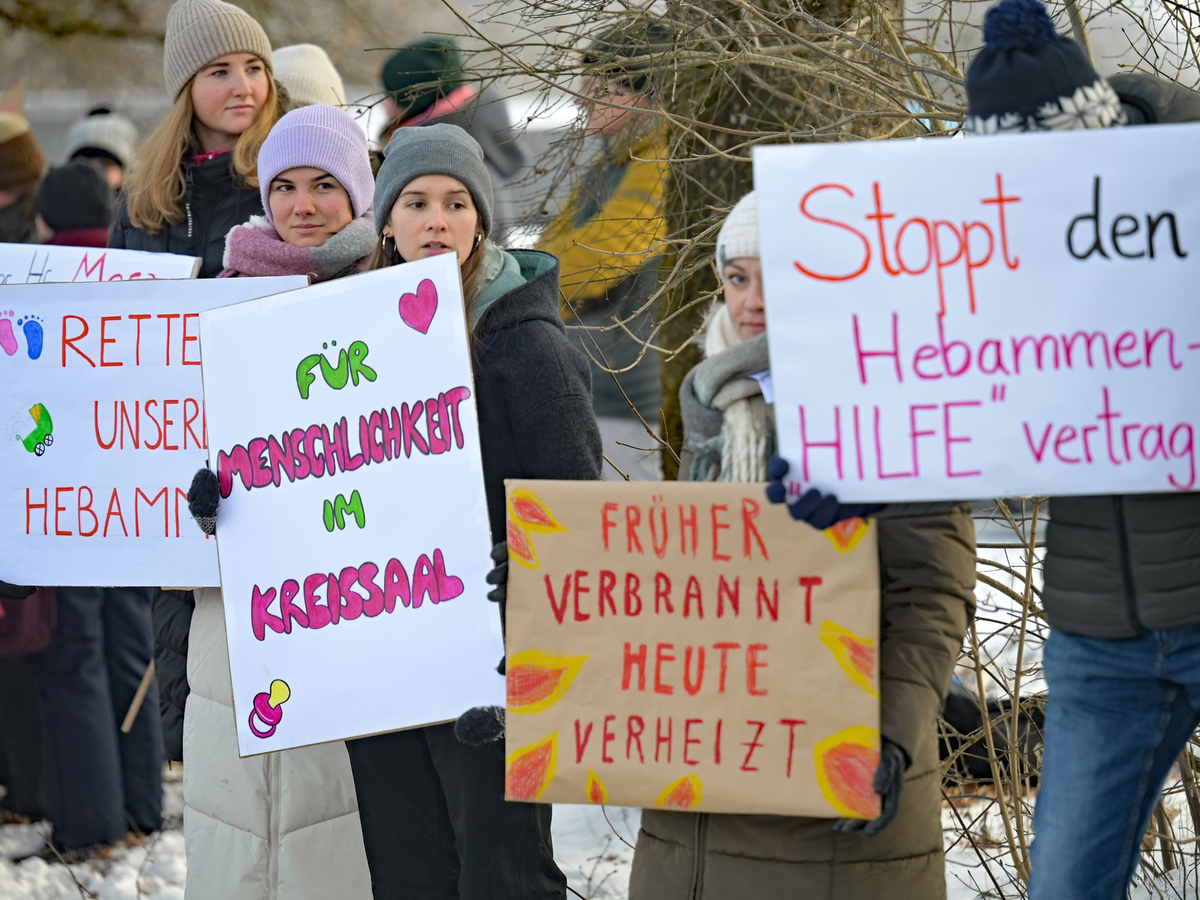 RETTE
UNSERE
HEBAMM
FÜR
MENSCHLICHKEIT
IM
KREISSAAL
FRÜHER
VERBRANNT
HEUTE
VERHEIZT
Stoppt den
Hebammen-
"HILFE" vertrag